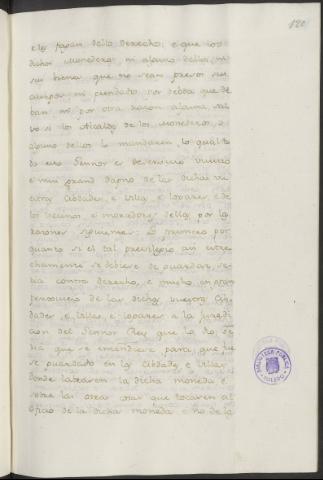 120
e les fagan dello derecho, e que los
dichos Monederos, ni alguno dellos, ni
sus bienes que no sean presos sus
cuerpos ni prendados por debda que de
ban ni por otra razon alguna, sal
vo si los Alcaldes de los Monederos, o
alguno dellos lo mandaren, lo qual es
Sennor e deservicio vuestro
e mui grand dapno de las dichas vu
estras Cibdades, e Villas, e logares, e de
los vecinos, e moradores dellas por las
razones siguientes. Lo primero por
quanto si el tal previllegio asi estre
chamente se debiese de guardar, se
ria contra derecho, e mucho en gran
de las dichas vuestras Cib
dades, e Villas, e logares, e la juredi
cion del Sennor Rey que lo
que se entendiese para que fue
se guardado en las Cibdades, e Villas
donde labrasen la dicha moneda e
sobre las otras cosas que tocasen al
oficio de la dicha moneda e no de lo
BIBLIOTECA PUBLICA
TOLEDO